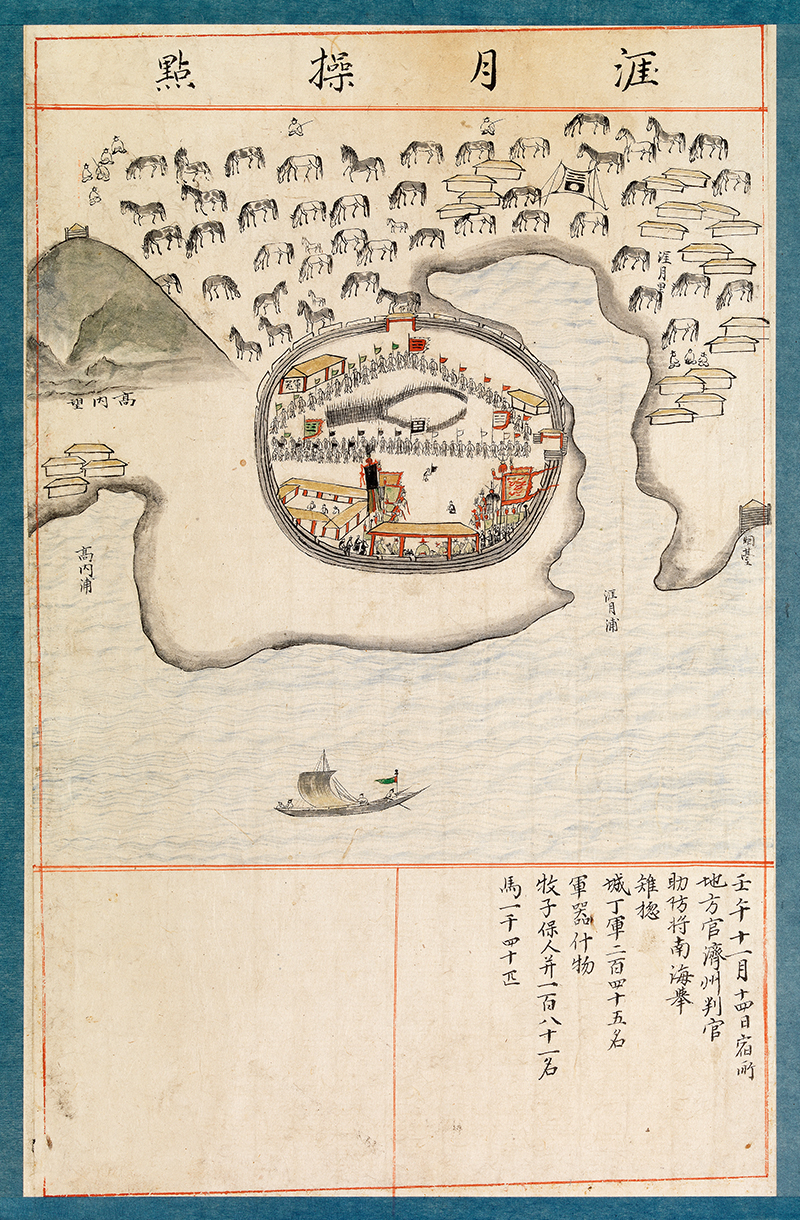 涯月操點
涯月里
高內望
高內浦
涯月浦
烟臺
壬午十一月十四日宿所
地方官濟州判官
助防將南海擧
雉摠
城丁軍二百四十五名
軍器什物
牧子保人并一百八十一名
馬一千四十匹